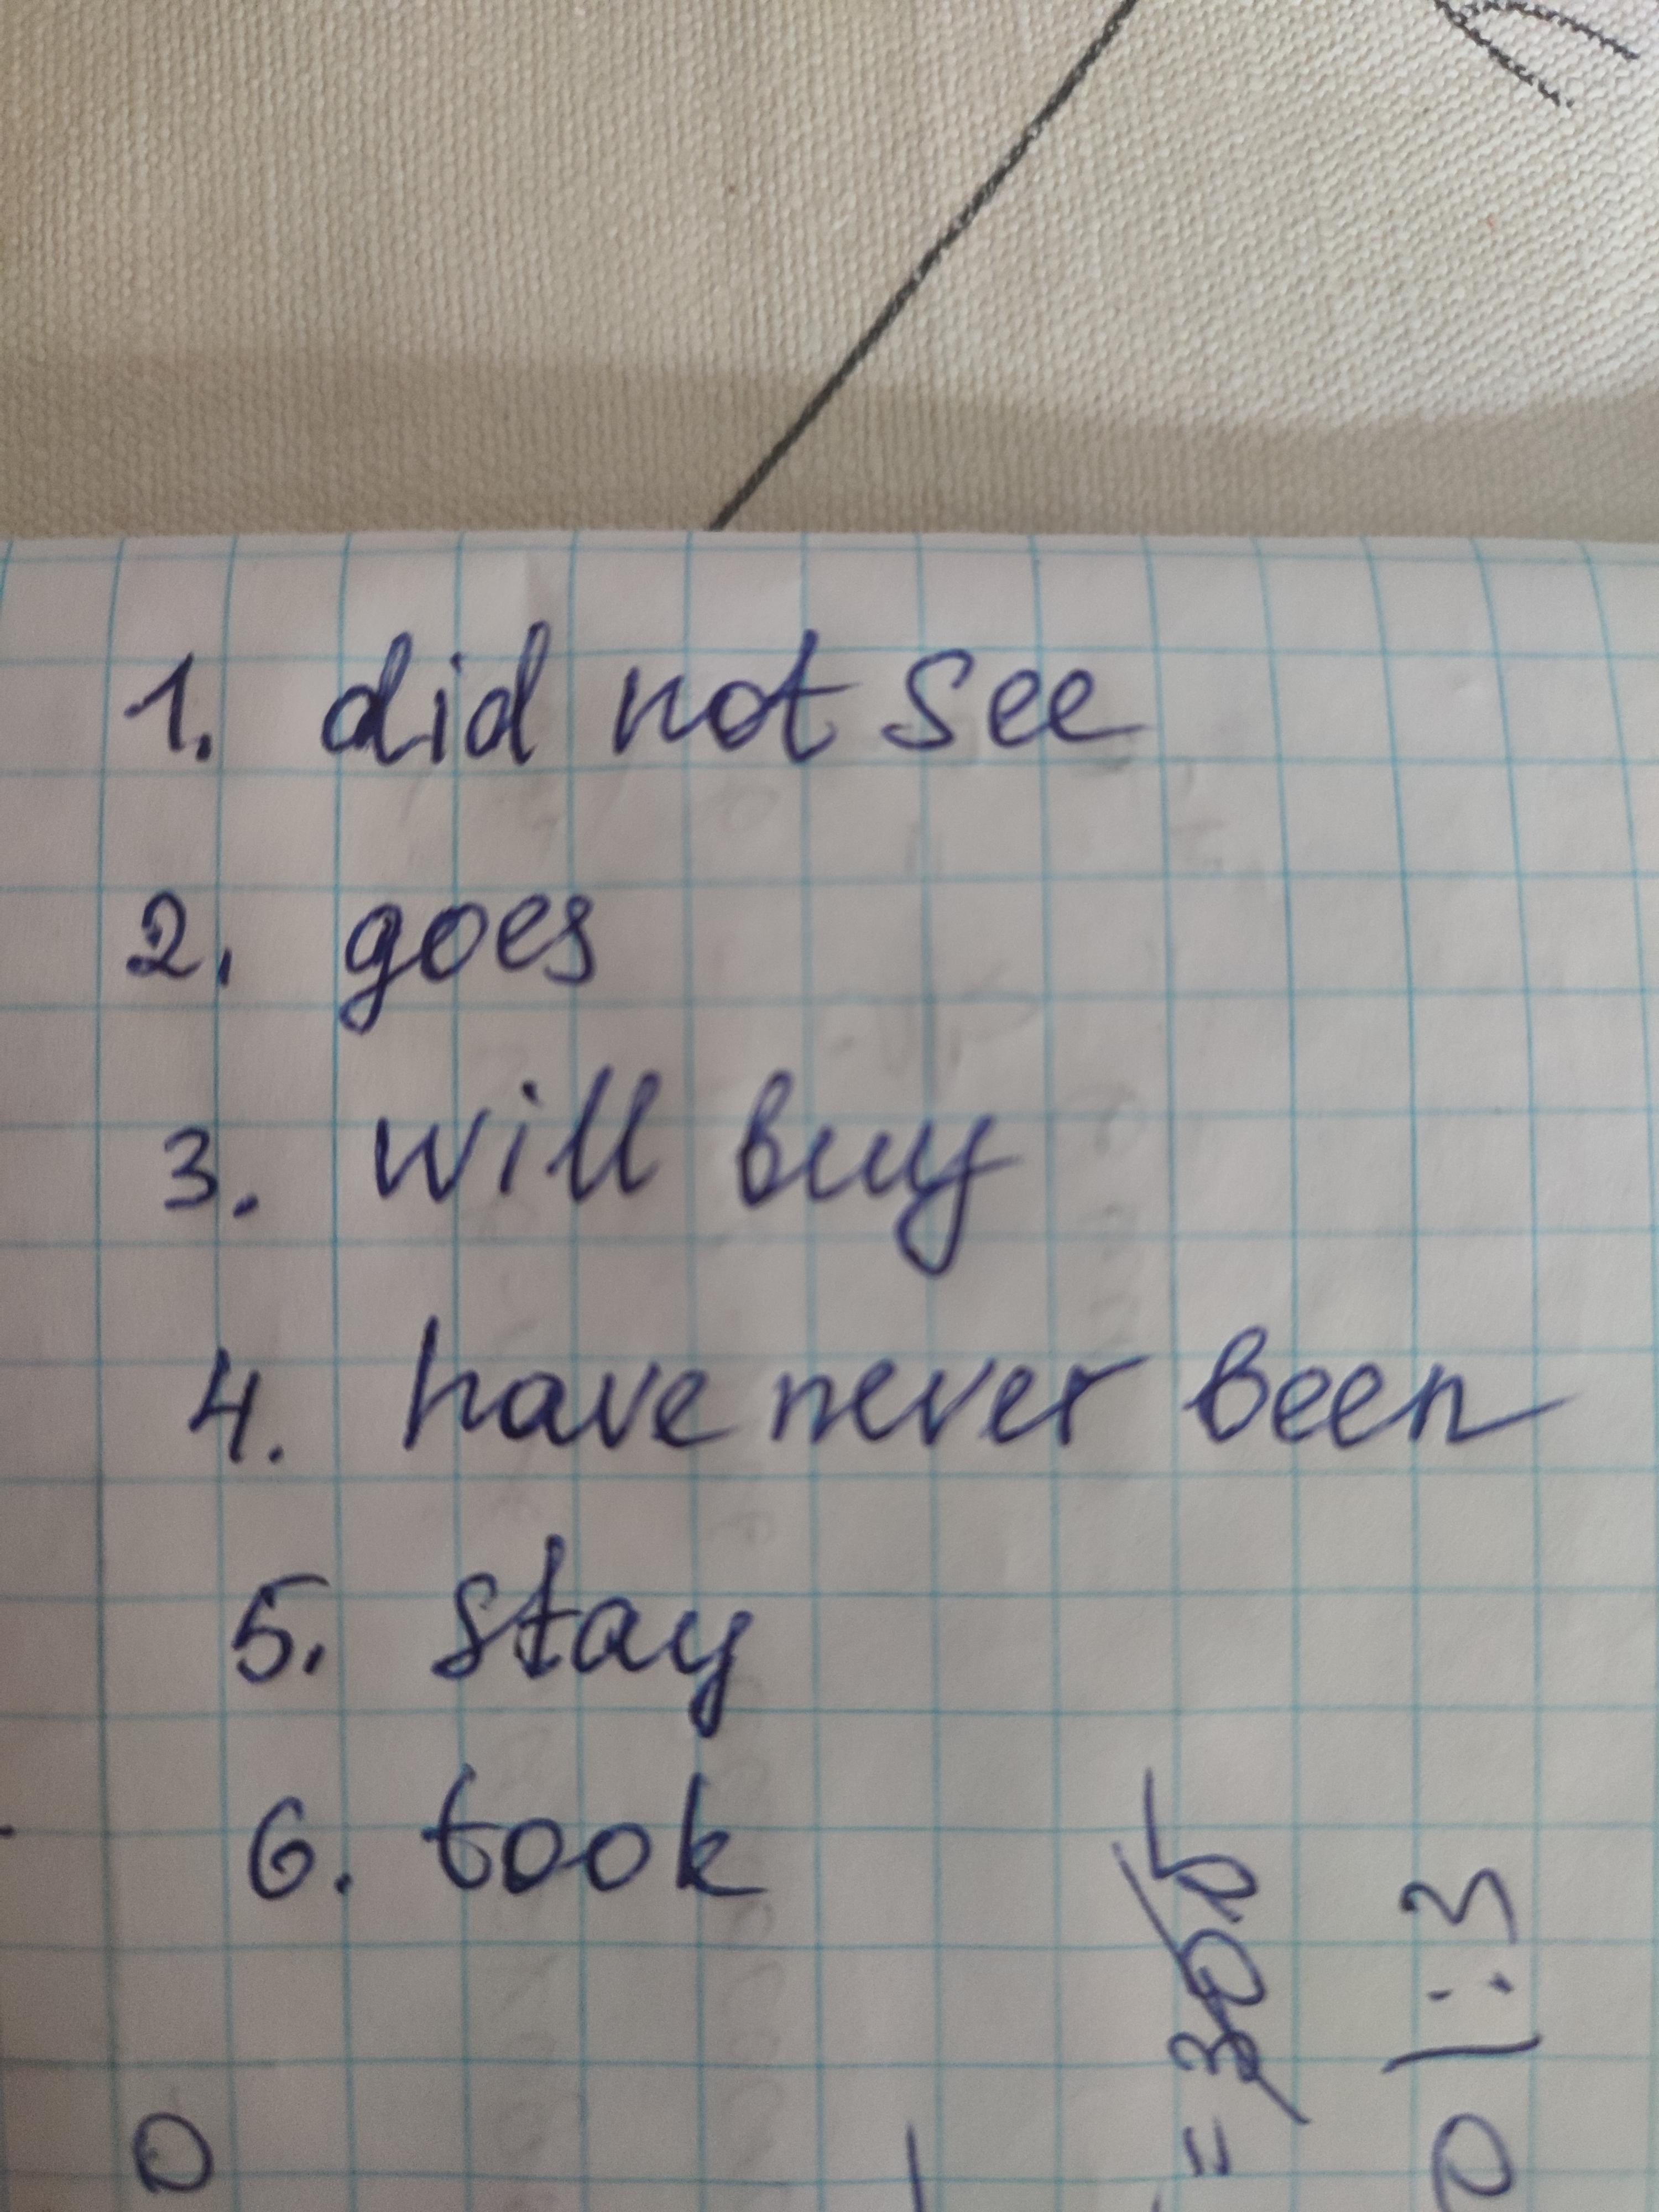 1. did not see
2. goes
3. will buy
4. have never been
5. stay
6. took